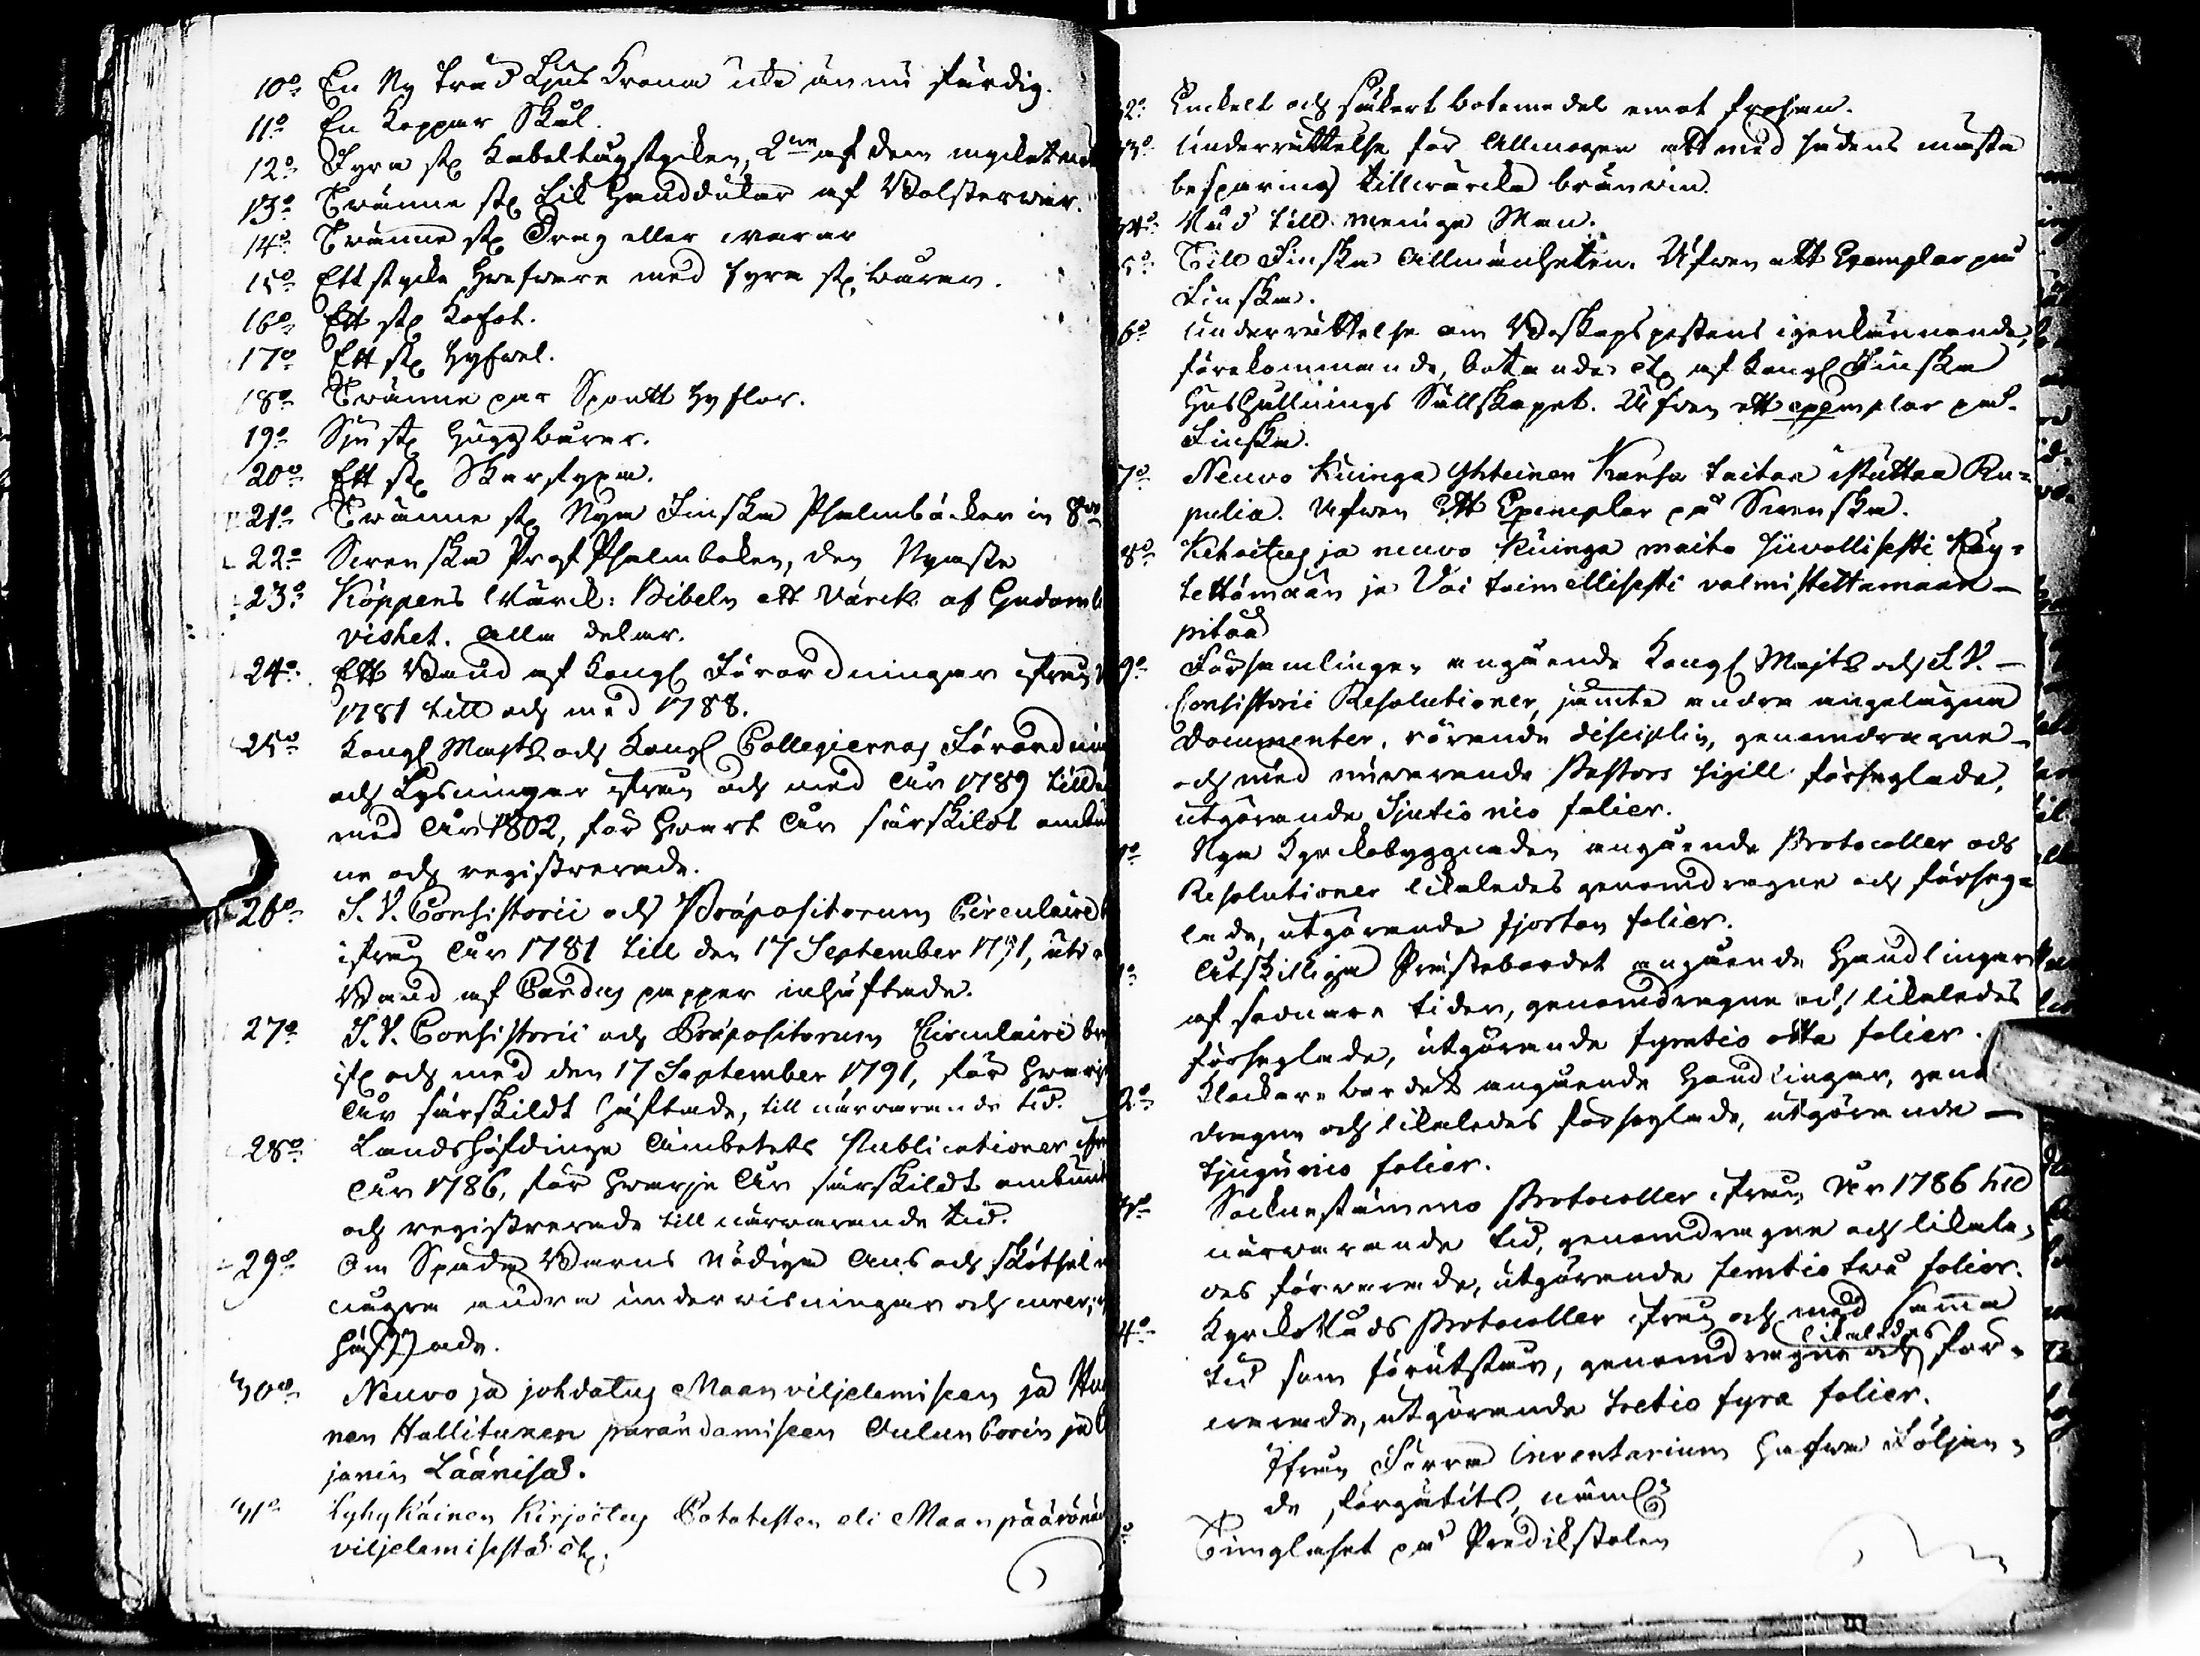 10:o En Ny Träd Ljus Krona icke ännu färdig.
11:o En Koppar Skål.
12:o Fyra st. Kabeltågstycken, 2ne af dem
13:o Tvänne st. Lik Handdukar af Bolsterwar.
14:o Tvänne st. Drag eller
15:o Ett stycke med fyra st. burar.
16:o Ett st. Kofot.
17:o Ett st. hyfwel.
18:o Tvänne par Spontt hyflor.
19:o Sju st.
20:o Ett st. Skarfyxa.
21:o Tvänne st. Nya Finska Psalmböcker in 8vo
22:o Svenska Prof Psalmboken, den Nyaste
23:o Köppens Värck: Bibeln ett Värck af Gudom
vishet. Alla delar.
24:o Ett Band af Kongl Förordningar ifrån
1781 till och med 1788.
25:o Kongl Majts och Kongl Collegiernas Förordnin
och Lysningar ifrån och med År 1789 till
med År 1802, för hwart År särskilt
ne och registrerade.
26:o S. V. Consistorii och Præpositorum Circulaire
ifrån År 1781 till den 17 September 1791, uti
Band af Cardus papper inhäftade.
27:o S. V. Consistorii och Præpositorum Circulaire
och med den 17 September 1791, för hwarj
År särskildt häftade, till närvarande tid.
28:o Landshöfdinge Ämbetets Publicationer
År 1786, för hwarje År särskildt
och registrerade till närvarande tid.
29:o Om Späda Barns Nödiga Ans och Skötsel
några andra underwisningar och
häftade.
30:o Neuvo ja johdatus Maanviljelemiseen ja
nen Hallituxen parandamiseen Oulun Borin ja
janin Läänisä.
31:o Lyhykäinen Kirjoitus Potatesten eli Maanpäärönäi
viljelemisestä etc.
2:o Enckelt och säkert botemedel emot frossan.
3:o Underrättelse för Allmogen att med sädens
besparing tillwärcka bränwin.
4:o Råd till menige Man.
5:o Till Finska Allmänheten. Äfwen ett Exemplar på
Finska.
6:o Underrättelse om Boskapspestens igenkännande,
förekommande, botande etc. af Kongl Finska
Hushållnings Sällskapet. Äfwen ett exemplar på
Finska.
7:o Neuvo Kuinga Yhteinen Kansa taitaa istuttaa Ru=
pulia. Äfwen Ett Exemplar på Svenska.
8:o Kehoitus ja neuvo Kuinga maito Käy=
tettämään ja Voi toimellisesti valmistettamaan
pitää
9:o Församlingen angående Kongl Majts och S. V.
Consistorii Resolutioner, jämte andra angelägna
Documenter, rörande disciplin, genomdragne
och med nuvarande Pastors sigill förseglade,
utgörande Sjutio nio folier.
Nya Kyrckobyggnaden angående Protocoller och
Resolutioner likaledes genomdragne och förseg=
lade, utgörande fjorton folier.
1:o Åtskillige Prästebordet angående Handlingar
af sednare tider, genomdragne och likaledes
förseglade, utgörande fyratio otta folier.
2:o Klockare bordet angående Handlingar,
dragne och likaledes förseglade, utgörande
tjugunio folier.
Sockne stämmo Protocoller ifrån År 1786 till
närvarande tid, genomdragne och likale=
des förwarade, utgörande femtio twå folier.
4:o Kyrckoråds Protocoller ifrån och med samma
tid som förutstår, genomdragne och likaledes för=
warade, utgörande tretio fyra folier.
Ifrån Förra Inventarium hafwa Följan=
de förgåtits, näml:
Timglaset på Predikstolen